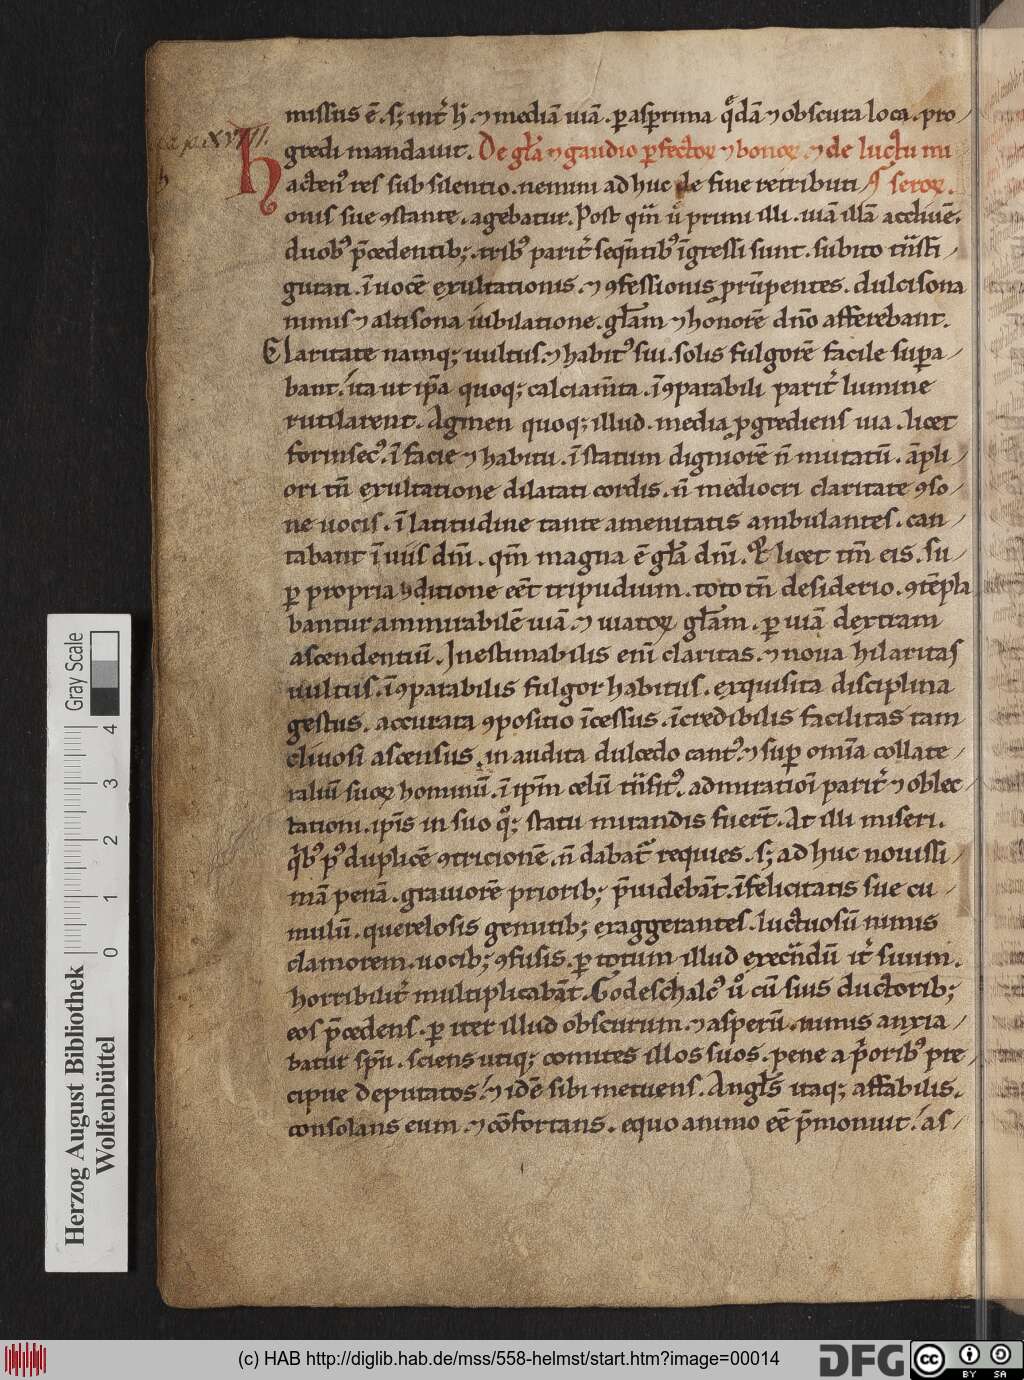 missus ē. s; int̉ h̄. ⁊ mediā uiā. ꝑ aspͥrima qͦdā ⁊ obscura loca. pro
gredi mandauit. De gl̄a ⁊ gaudio ꝑfectoꝝ ⁊ bonoꝝ. ⁊ de luctu mi
seroꝝ.
Hacten᷒ res sub silentio. nemini adhuc de fine retributi
onis sue ꝯstante. agebatur. Post qm̄ ů primi illi. uiā illā accliuē.
duob᷒ p̄cedentib;. trib᷒ parit̉ seqn̄tib᷒ īgressi sunt. subito tͣnsfi
gurati. ī uocē exultationis. ⁊ ꝯfessionis prūpentes. dulcisona
nimis ⁊ altisona iubilatione. gl̄am ⁊ honorē dn̄o afferebant.
Claritate namq; uultus. ⁊ habit᷒ sui. solis fulgorē facile supa
bant. ita ut ip̄a quoq; calciam̄ta. īꝯparabili parit̉ lumine
rutilarent. Agmen quoq; illud. media ꝓgrediens uia. licet
forinsec᷒. ī facie ⁊ habitu. ī statum digniorē n̄ mutatū. āpli
ori tn̄ exultatione dilatati cordis. n̄ mediocri claritate ꝯso
ne uocis. ī latitudine tante amenitatis ambulantes. can
tabant ī uiis dn̄i. qm̄ magna ē gl̄a dn̄i. Et licet tm̄ eis. su
ꝑ propria ꝯditione eēt tripudium. toto tn̄ desiderio. ꝯtēpla
bantur ammirabilē uiā. ⁊ uiatoꝝ gl̄am. ꝑ uiā dextram
ascendentiū. Inestimabilis eni claritas. ⁊ noua hilaritas
uultus. īꝯparabilis fulgor habitus. exquisita disciplina
gestus. accurata ꝯpositio īcessus. īcredibilis facilitas tam
cliuosi ascensus. inaudita dulcedo cant᷒. ⁊ suꝑ omīa collate
raliū suoꝝ hominū. ī ip̄m celū tͣnsit᷒. admirationi parit̉ ⁊ oblec
tationi. ip̄is in suo qͦ; statu mirandis fuer̄t. At illi miseri.
qͥb᷒ p᷒ duplicē ꝯtricionē. n̄ dabatͬ requies. s; adhuc nouissi
mā penā. grauiorē priorib; p̄uidebāt. īfelicitatis sue cu
mulū. querelosis gemitib; exaggerantes. luctuosū nimis
clamorem. uocib; ꝯfusis. ꝑ totum illud execͣndū it̉ suum.
horribilit̉ multiplicabāt. Godeschalc᷒ ů cū suis ductorib;
eos p̄cedens. ꝑ iter illud obscurum. ⁊ asperū. nimis anxia
batur sp̄u. sciens utiq; comites illos suos. pene a pͥorib᷒ pre
cipue deputatos. ⁊ idē sibi metuens. Angl̄s itaq; affabilis.
consolans eum. ⁊ cōfortans. equo animo eē p̄monuit. as
Herzog August Bibliothek
Wolfenbüttel
0 1 2 3 4
Gray Scale
(c) HAB http://diglib.hab.de/mss/558-helmst/start.htm?image=00014
DFG
cc
BY SA